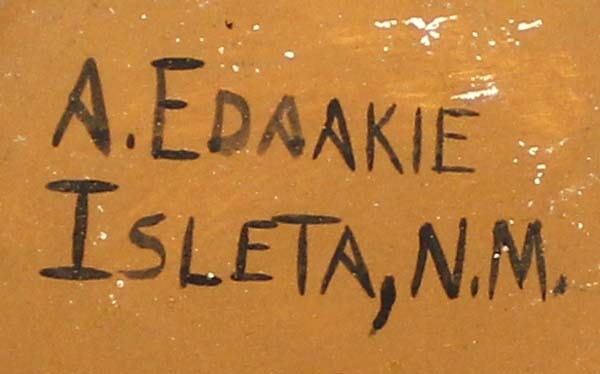 A. EDAAKIE
ISLETA, N.M.